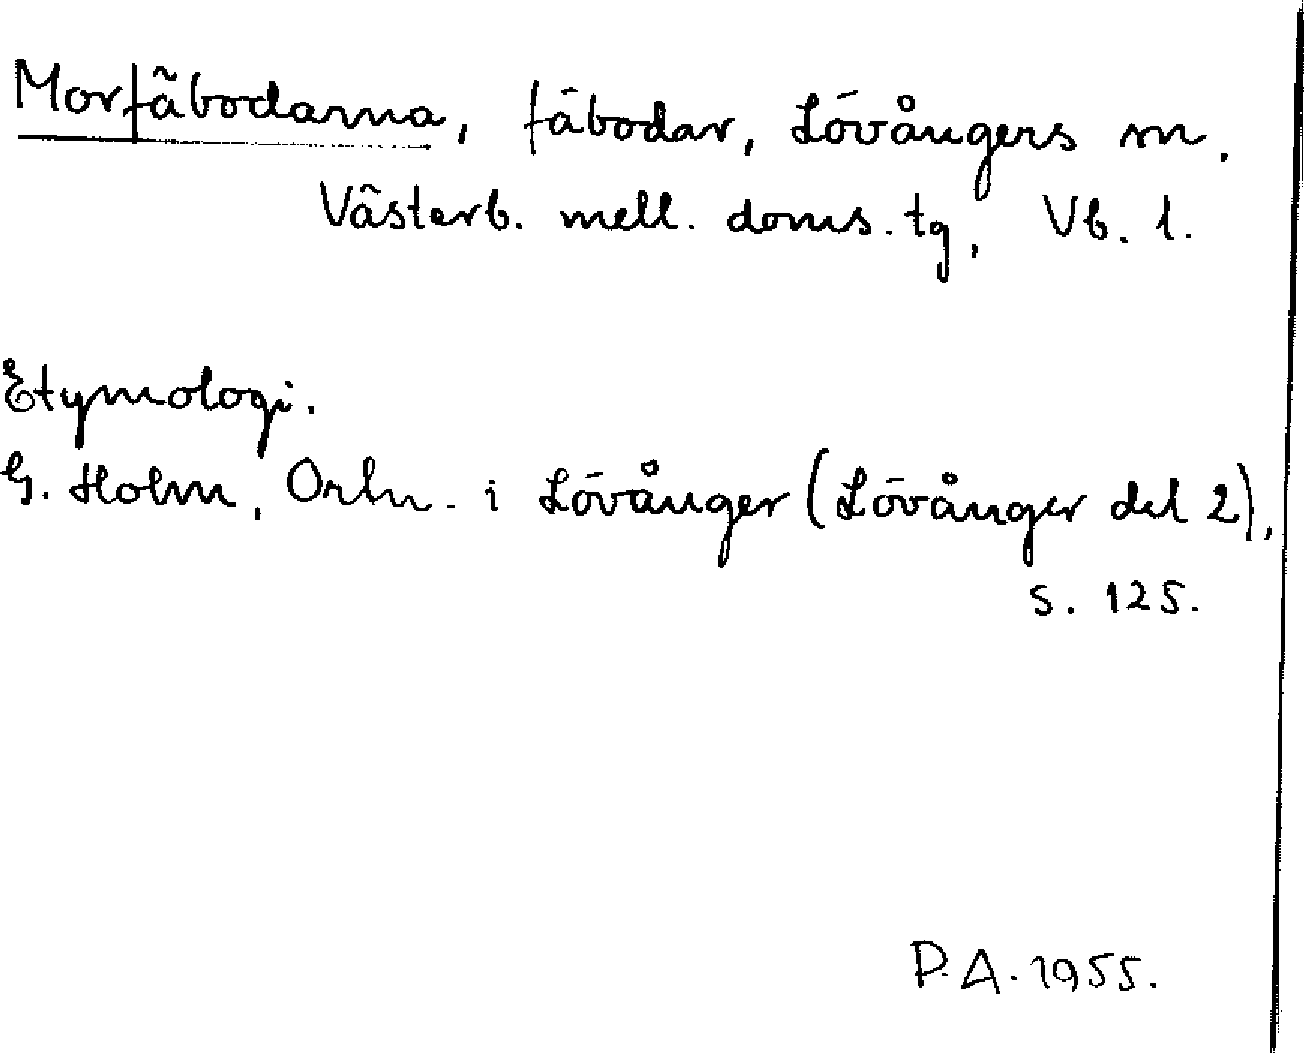 Morfäbodarna, fäbodar, Lövångers sn.
Västerb. mell. doms. tg, Vb. l.
Etymologi.
G. Holm, Ortn. i Lövånger (Lövånger del 2),
s. 125.
P.A. 1955.